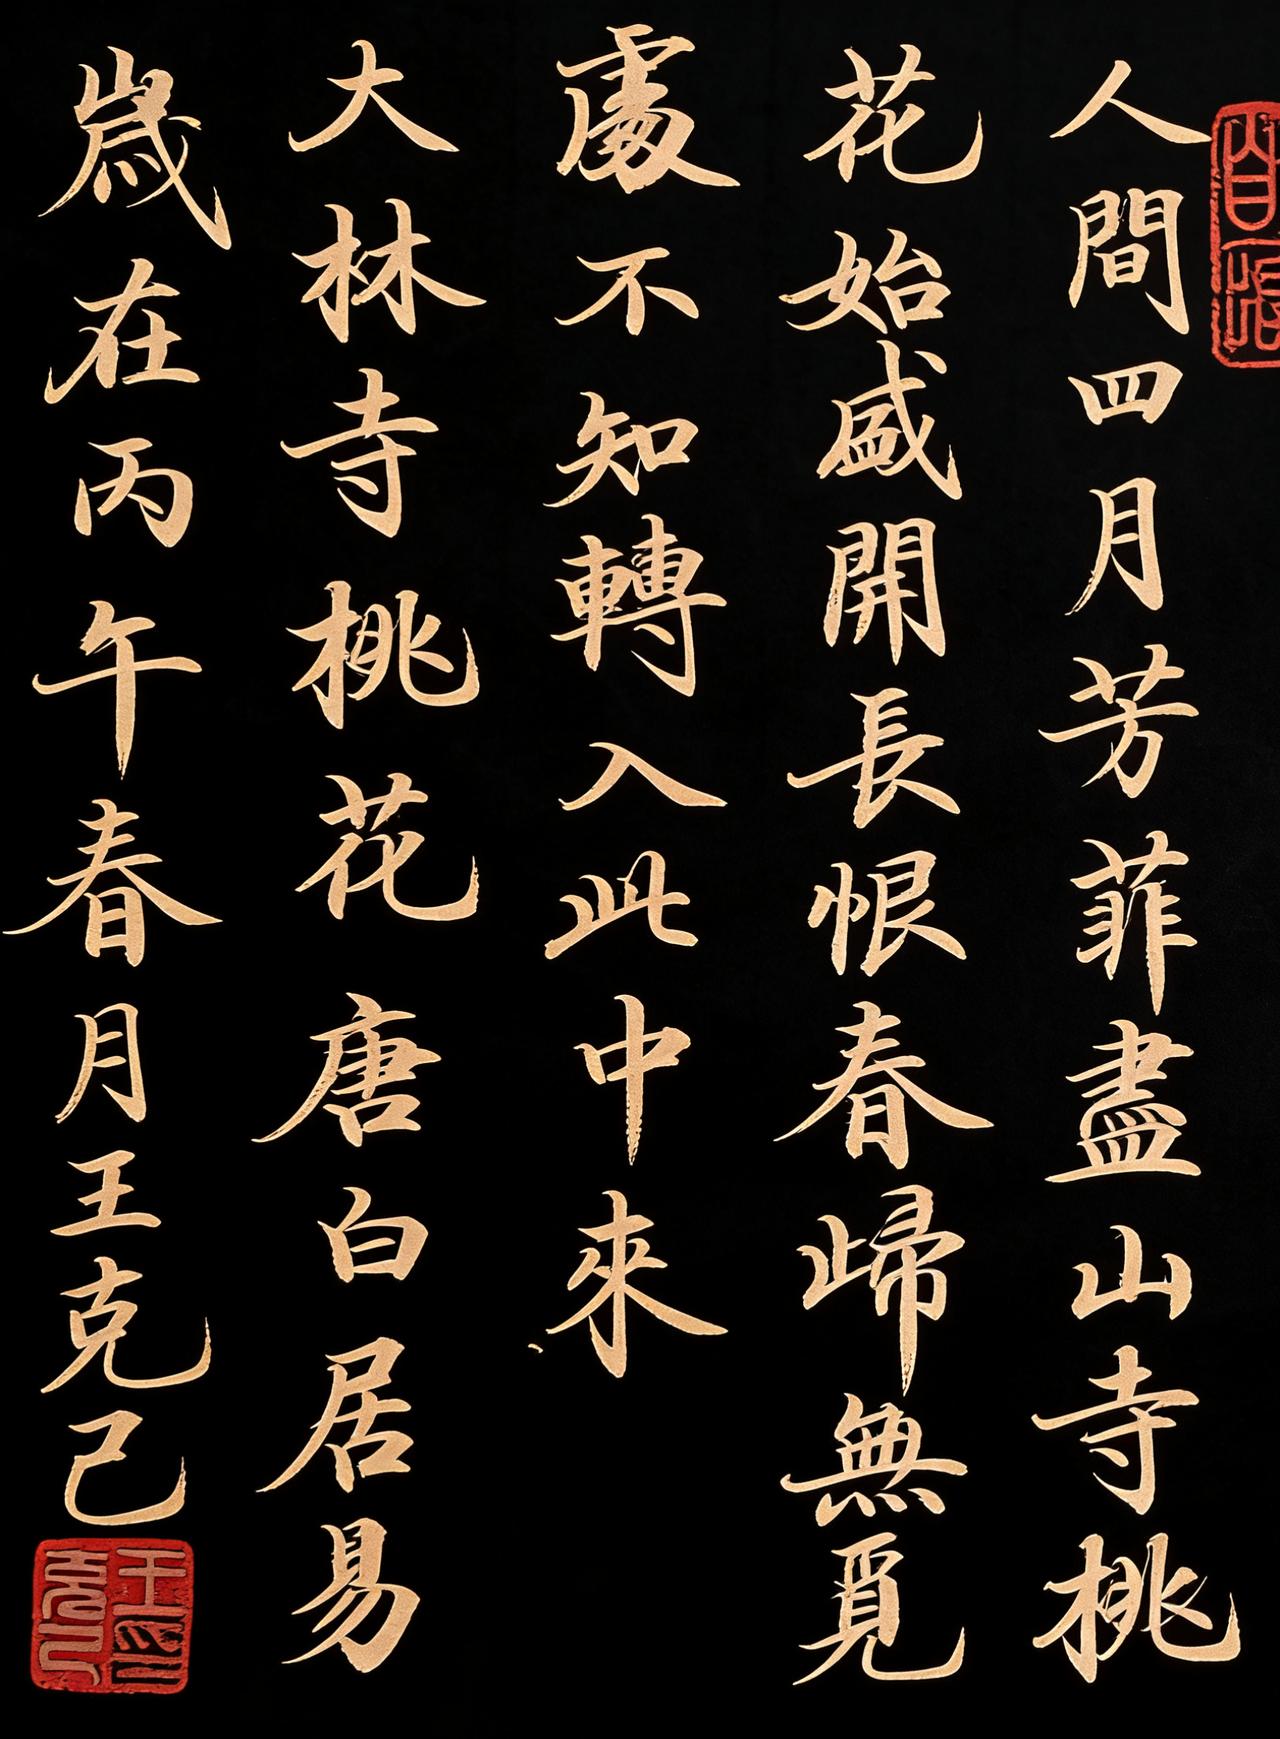 人間四月芳菲盡山寺桃
花始盛開長恨春歸無覓
處不知轉入此中來
大林寺桃花唐白居易
歲在丙午春月王克己